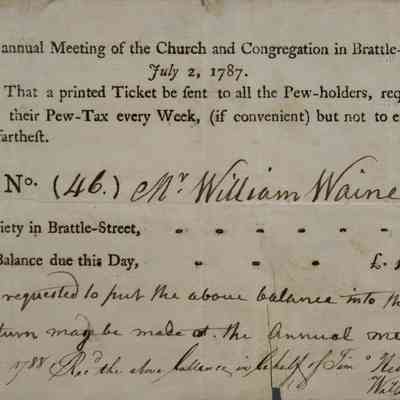 annual Meeting of the Church and Congregation in Brattle-
July 2, 1787.
That a printed Ticket be sent to all the Pew-holders, req
their Pew-Tax every Week, (if convenient) but not to e
fartheſt.
No. (46.) Mr William Waine
iety in Brattle-Street,
Balance due this Day, £.
requested to put the above balance into th
turn may be made at the Annual me
1788 Recd the above ballance in behalf of Timo